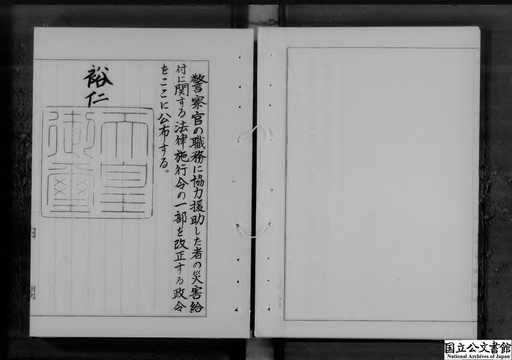 警察官の職務に協力援助した者の災害給
付に関する法律施行令の一部を改正する政令
をここに公布する。
裕仁
天皇
御璽
内閣
国立公文書館
National Archives of Japan